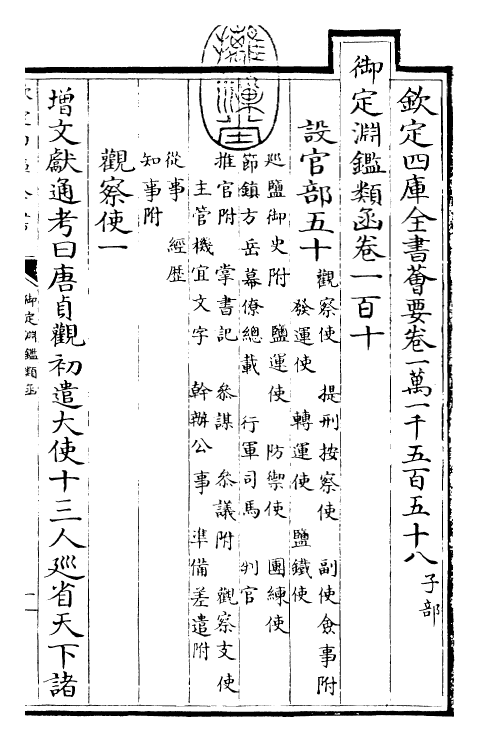 欽定四庫全書薈要卷一萬一千五百五十八 子部
御定淵鑑類函卷一百十
設官部五十
觀察使 提刑按察使 副使僉事附
發運使 轉運使 鹽鐵使
廵鹽御史附 鹽運使 防禦使 團練使
節鎮方岳幕僚總載 行軍司馬 判官
推官附 掌書記 叅謀 叅議附 觀察支使
主管機宜文字 幹辦公事 準備差遣附
從事 經歴
知事附
觀察使一
增文獻通考曰唐貞觀初遣大使十三人廵省天下諸
御定淵鑑類函
一